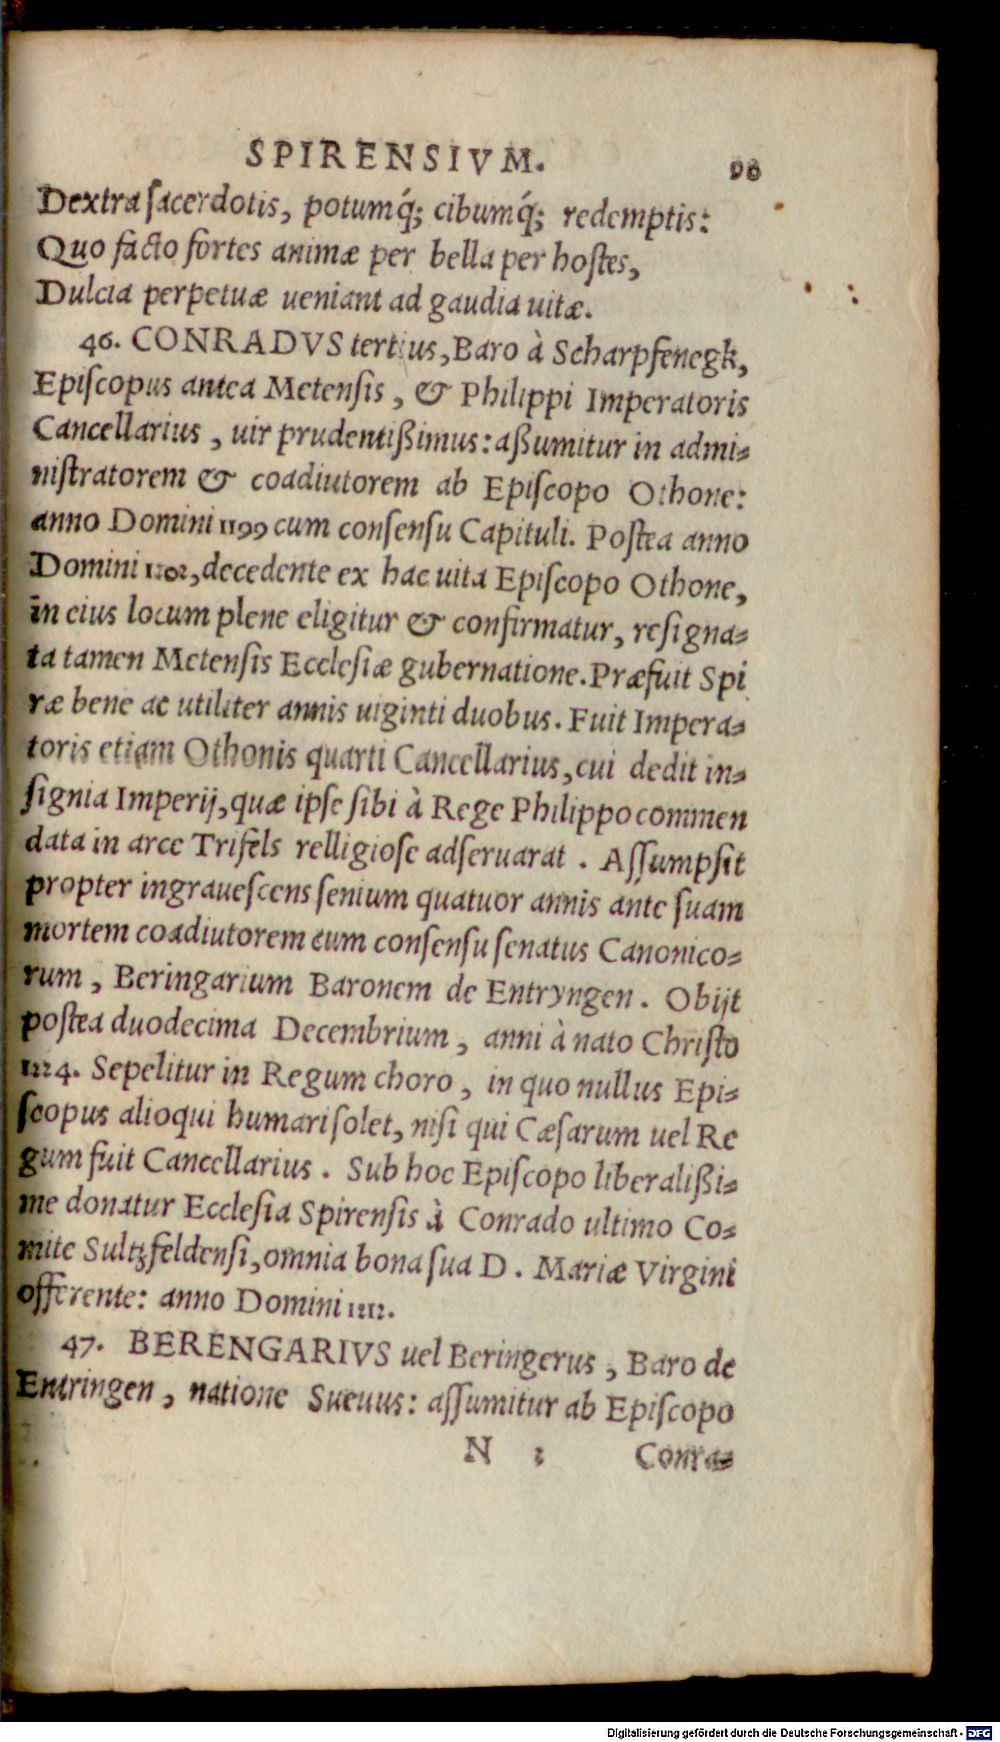 SPIRENSIVM. 98
Dextra ſacerdotis, potumq́; cibumq́; redemptis:
Quo facto fortes animæ per bella per hoſtes,
Dulcia perpetuæ ueniant ad gaudia uitæ.
46. CONRADVS tertius, Baro à Scharpfenegk,
Epiſcopus antea Metenſis, & Philippi Imperatoris
Cancellarius, uir prudentißimus: aßumitur in admi=
niſtratorem & coadiutorem ab Epiſcopo Othone:
anno Domini 1199 cum conſenſu Capituli. Poſtea anno
Domini 1202, decedente ex hac uita Epiſcopo Othone,
in eius locum plene eligitur & confirmatur, reſigna=
ta tamen Metenſis Eccleſiæ gubernatione. Præfuit Spi
ræ bene ac utiliter annis uiginti duobus. Fuit Impera=
toris etiam Othonis quarti Cancellarius, cui dedit in=
ſignia Imperij, quæ ipſe ſibi à Rege Philippo commen
data in arce Trifels relligioſe adſeruarat. Aſſumpſit
propter ingraueſcens ſenium quatuor annis ante ſuam
mortem coadiutorem cum conſenſu ſenatus Canonico=
rum, Beringarium Baronem de Entryngen. Obijt
poſtea duodecima Decembrium, anni à nato Chriſto
1224. Sepelitur in Regum choro, in quo nullus Epi=
ſcopus alioqui humari ſolet, niſi qui Cæſarum uel Re
gum fuit Cancellarius. Sub hoc Epiſcopo liberalißi=
me donatur Eccleſia Spirenſis à Conrado ultimo Co=
mite Sultzfeldenſi, omnia bona ſua D. Mariæ Virgini
offerente: anno Domini
47. BERENGARIVS uel Beringerus, Baro de
Entringen, natione Sueuus: aſſumitur ab Epiſcopo
N 2 Conra=
Digitalisierung gefördert durch die Deutsche Forschungsgemeinschaft - DFG